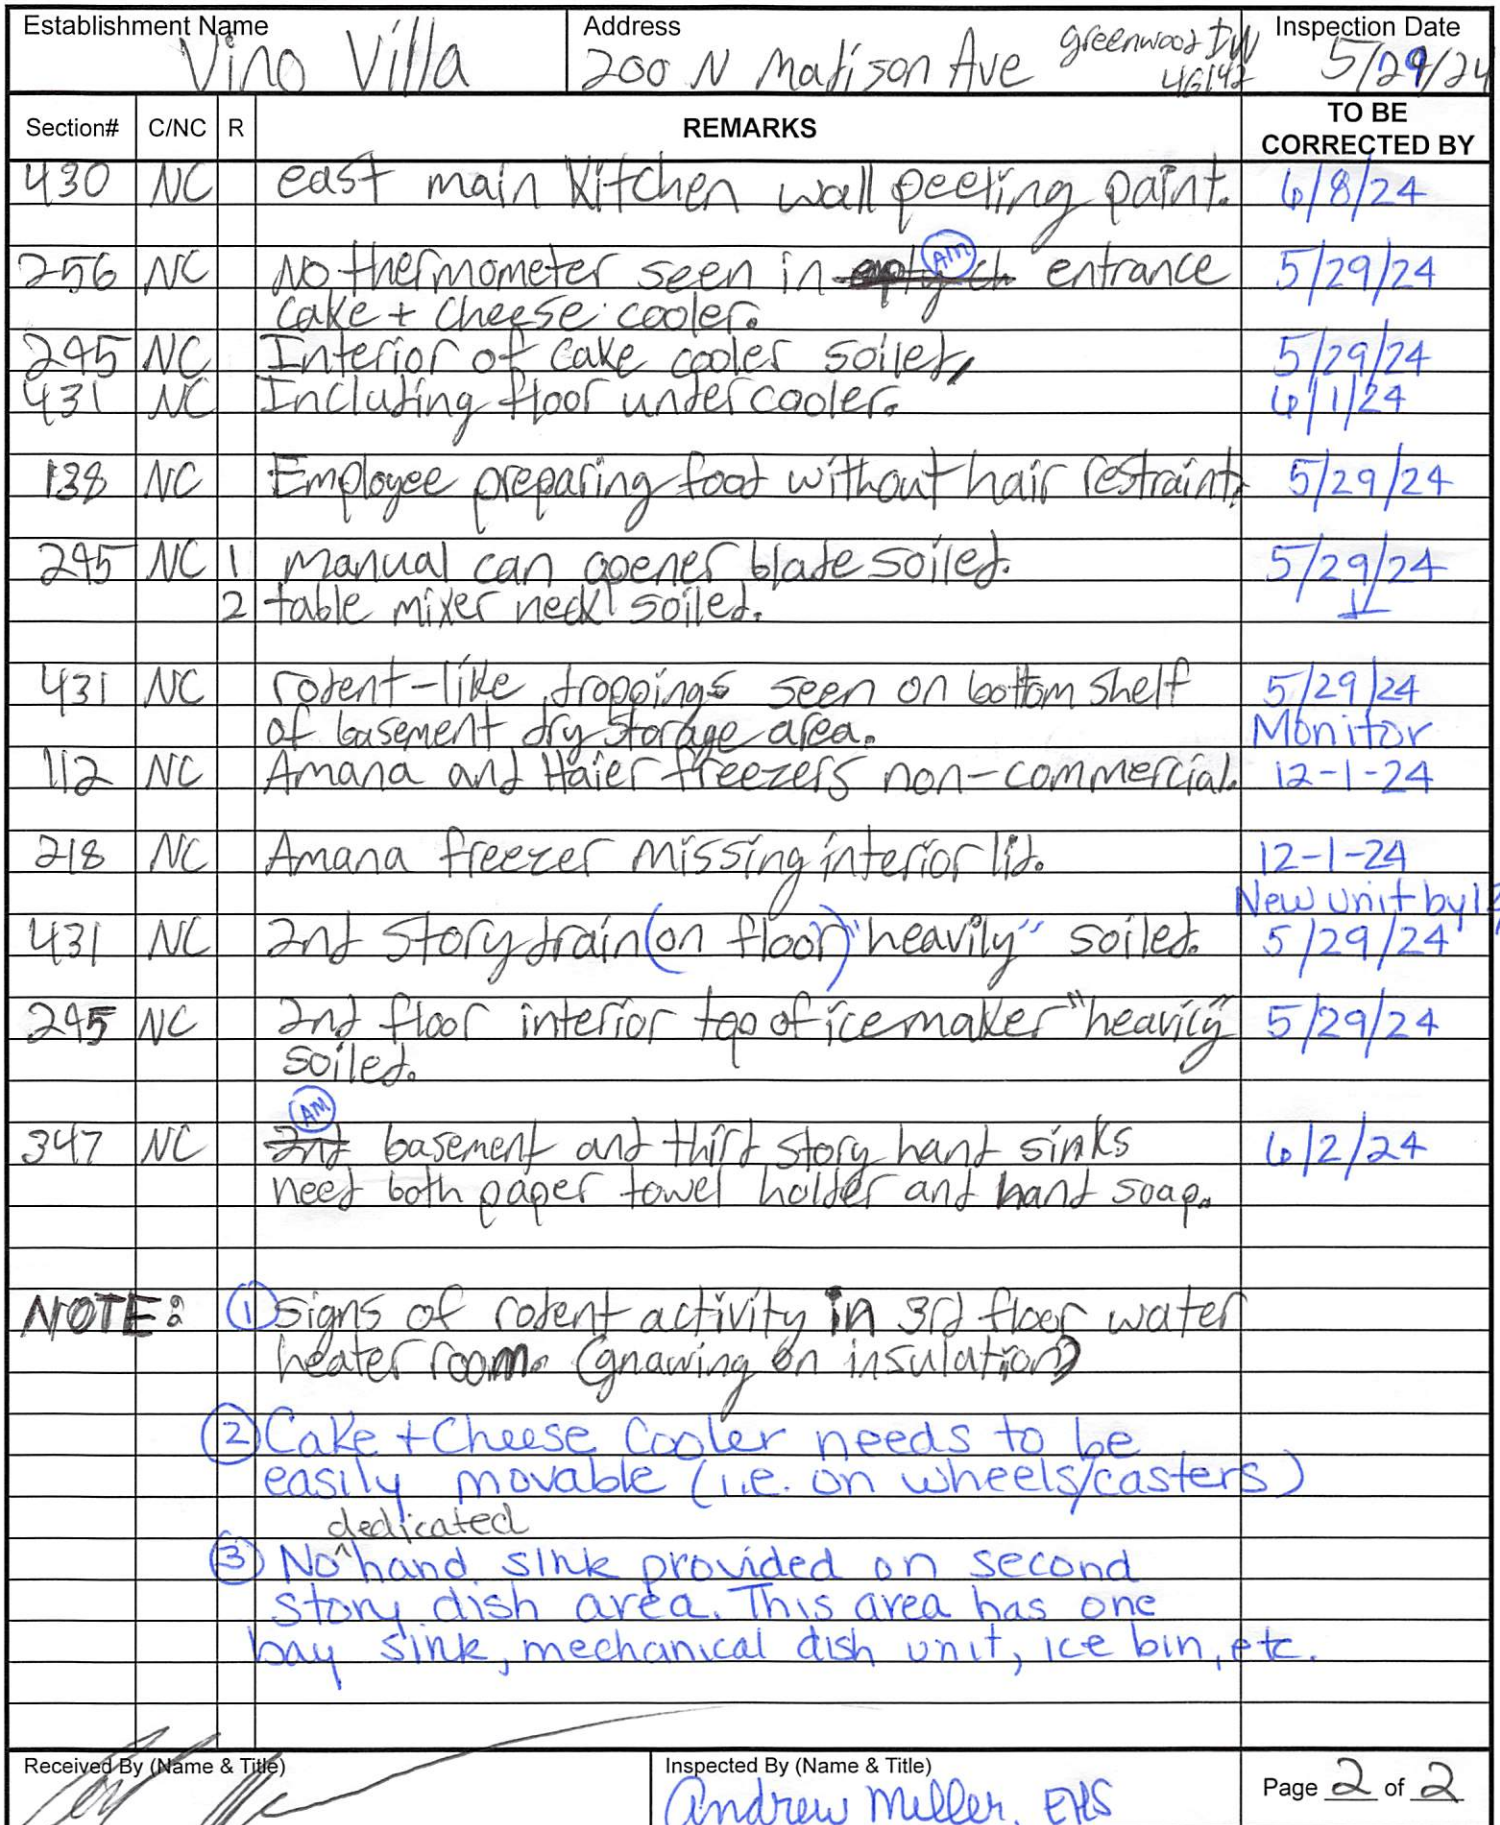 Establishment Name Vino Villa Address 200 N Madison Ave Greenwood IN 46142 Inspection Date 5/29/24
Section# C/NC R REMARKS TO BE CORRECTED BY
430 NC east main kitchen wall peeling paint. 6/8/24
256 NC No thermometer seen in AM entrance 5/29/24
cake + cheese cooler.
295 NC Interior of cake cooler soiled, 5/29/24
431 NC Including floor under cooler. 6/1/24
138 NC Employee preparing food without hair restraint. 5/29/24
295 NC 1 manual can opener blade soiled. 5/29/24
2 table mixer neck soiled. ↓
431 NC rodent-like droppings seen on bottom shelf 5/29/24
of basement dry storage area. Monitor
112 NC Amana and Haier freezers non-commercial. 12-1-24
218 NC Amana freezer missing interior lid. 12-1-24
New unit by 12
431 NC 2nd story drain (on floor) "heavily" soiled. 5/29/24
295 NC 2nd floor interior top of icemaker "heavily" 5/29/24
soiled.
AM
347 NC 2nd basement and third story hand sinks 6/2/24
need both paper towel holder and hand soap.
NOTE: 1 Signs of rodent activity in 3rd floor water
heater room. (gnawing on insulation)
2 Cake + Cheese Cooler needs to be
easily movable (i.e. on wheels/casters)
dedicated
3 No ^ hand sink provided on second
story dish area. This area has one
bay sink, mechanical dish unit, ice bin, etc.
Received By (Name & Title) Inspected By (Name & Title) Page 2 of 2
Andrew Miller, EHS